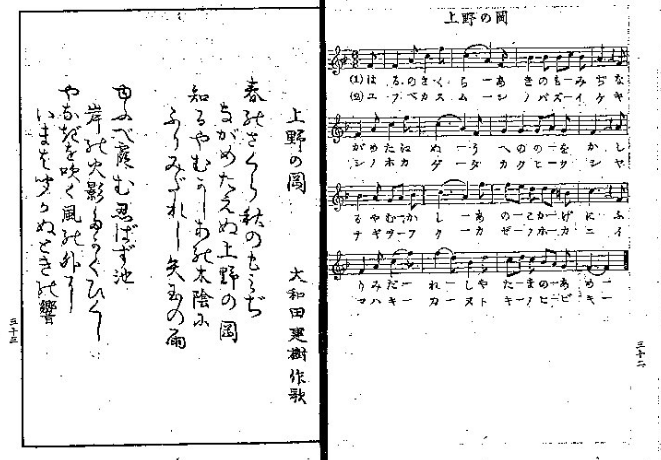 上野の岡
(1)は るのさくら ーあ きのもーみぢな
(2)ユ フベカス ムーシ ノバズーイケキ
がめたえぬ ーう へののーをか し
シノホカ ゲータ カクヒーク シヤ
るやむーか しーあ のーこかーげに ふ
ナギヲーフ クーカ ゼーノホーカ ニイ
りみだー れーしや たーまのあ めー
マハキー カーヌト キーノヒービ キー
三十二
上野の岡
大和田建樹作歌
春のさくら秋のもみぢ
ながめたえぬ上野の岡
知るやむかしあの木陰に
ふりみだれし矢玉の雨
ゆふべ霞む忍ばず池
岸の火影たかくひくし
やなぎを吹く風の外に
いまは聞かぬときの響
三十三